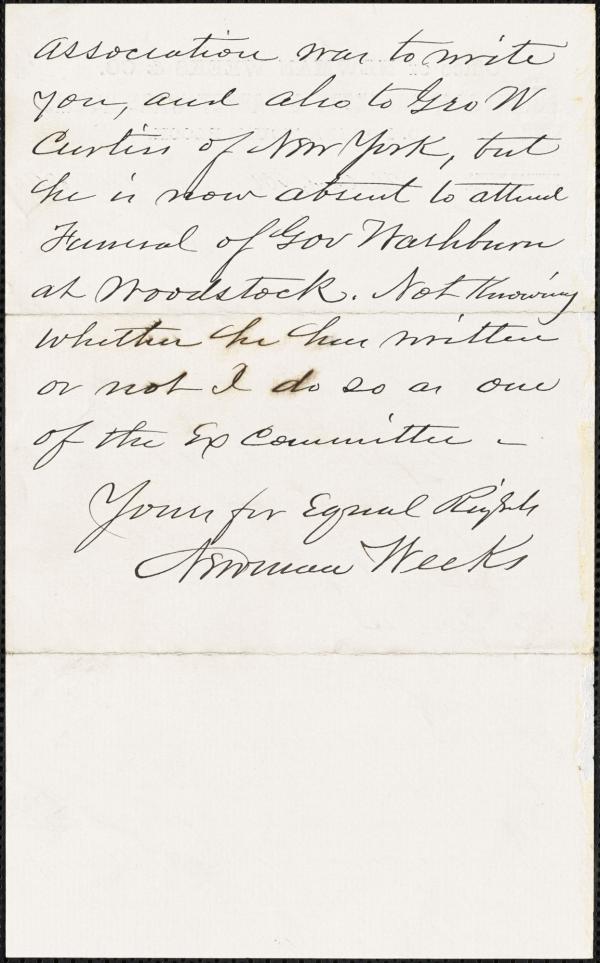 association was to write
you, and also to Geo W
Curtiss of New York, but
he is now absent to attend
Funeral of Gov Washburn
at Woodstock. Not Knowing
whether he has written
or not I do so as one
of the Ex Committee -
Yours for Equal Rights
Newman Weeks